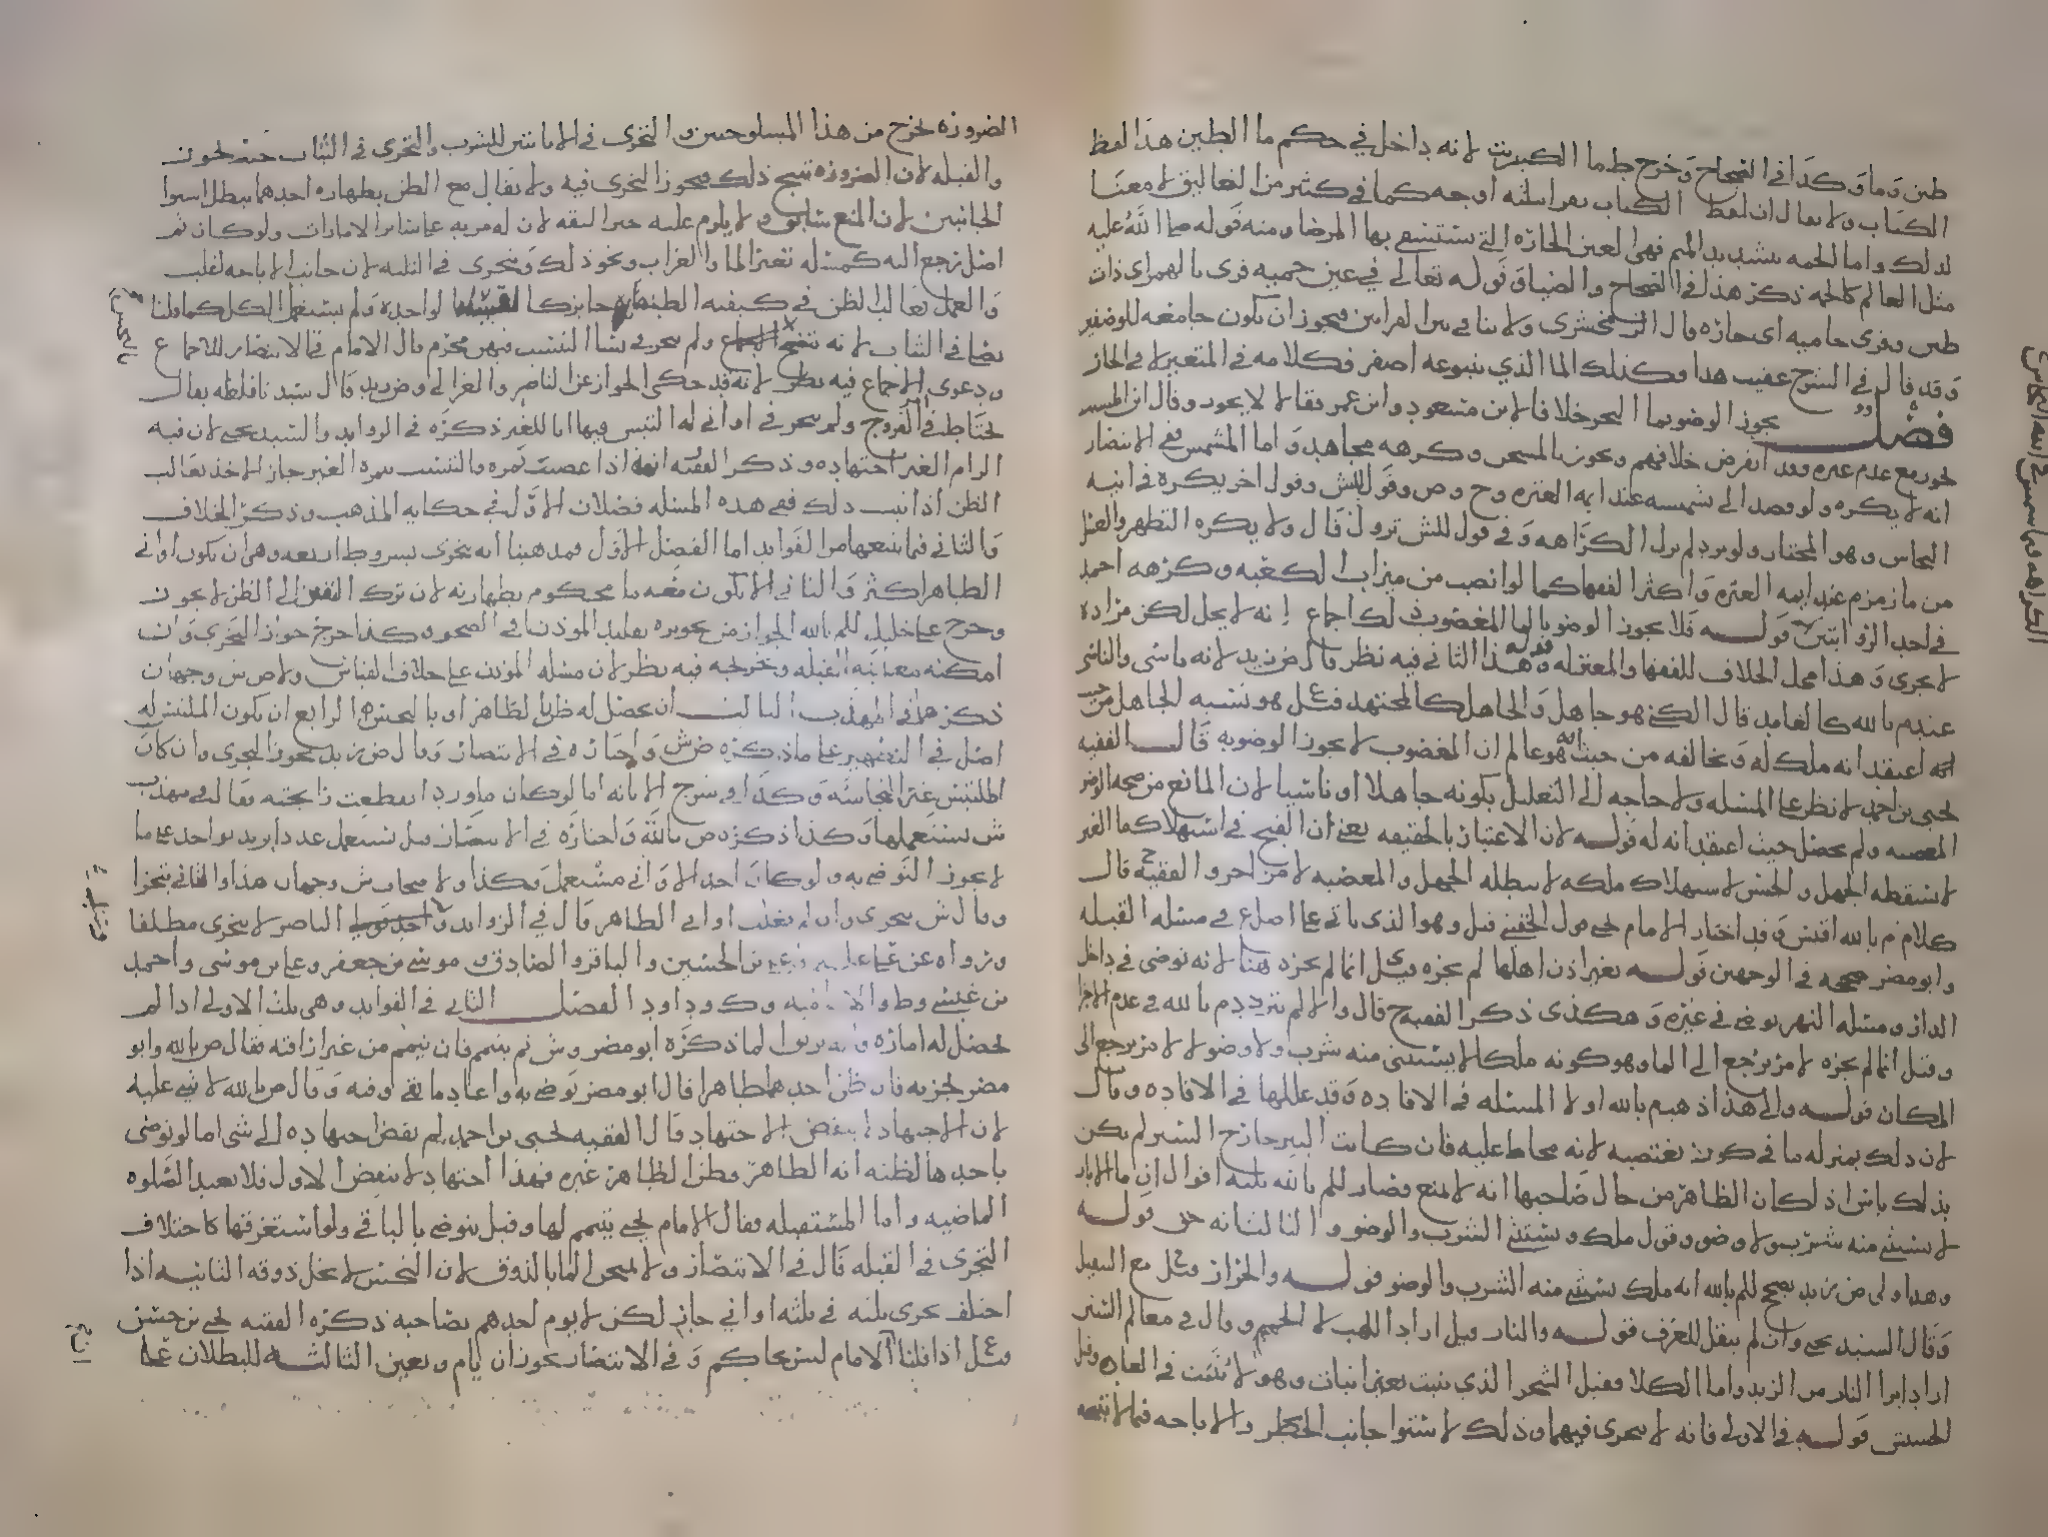 طين وما وكذا في الصحاح وخرج ط ما الكبريت لانه داخل في حكم ما الطين هذا لفظ
الكتاب ولا يقال ان لفظ الكتاب
لذلك واما الحمه بتشديد الميم فهي العين الحاره التي يستشفي بها المرضا ومنه قوله صلى الله عليه
مثل العالم كالحمه ذكر هذا في الصحاح والضيا وقوله تعالى في عين حميه قرى بالهمز اي ذات
طين وقرى حاميه اي حاره قال الزمخشري ولا تنافي بين القراتين فيجوز ان تكون جامعه للوصفين
وقد قال في الشرح عقيب هذا وكذلك الما الذي ينبوعه اصفر فكلامه في المتغير لا في الحار
فصل يجوز الوضو بما البحر خلافا لابن مسعود وابن عمر فقالا لا يجوز وقال ابن المسيب
يجوز مع عدم غيره وقد انقرض خلافهم ويجوز بالمسخن وكرهه مجاهد واما المشمس ففي الانتصار
انه لا يكره ولو قصد الى تشميسه عند ايمه العتره وح وص وقول للش وقول اخر يكره في انيه
النحاس وهو المختار ولو برد لم يزل الكراهه وفي قول للش تزول قال ولا يكره التطهر والغسل
من ما زمزم عند ايمه العتره واكثر الفقها كما لو انصب من ميزاب الكعبه وكرهه احمد
في احد الروايتين قوله فلا يجوز الوضو بالما المغصوب ذلك اجماع انه لا يحل لكن مراده
لا يجزي وهذا محل الخلاف للفقها والمعتزله قوله وهذا الثاني فيه نظر قال ض زيد لانه ناسي والناسي
عند م بالله كالعامد قال الكني هو جاهل والجاهل كالمجتهد وقيل هو يشبه الجاهل من حيث
انه اعتقد انه ملك له ويخالفه من حيث انه هو عالم ان المغصوب لا يجوز الوضو به قال الفقيه
يحيى بن احمد لا نظر على المسله ولا حاجه الى التعليل بكونه جاهلا او ناسيا لان المانع من صحه الوضو
المعصيه ولم يحصل حيث اعتقد انه له قوله لان الاعتبار بالحقيقه يعني ان القبح في استهلاك ما الغير
لا يسقطه الجهل والحسن لاستهلاك ملكه لا يبطله الجهل والمعصيه لامر اخر والفقيه ح قال
كلام م بالله اقيس وقد اختار الامام يحي قول الحقيني قيل وهو الذي ياتي على اصل ع في مسله القبله
وابو مضر صححه في الوجهين قوله بغير اذن اهلها لم يجزه وقيل انما لم يجزه هنا لانه توضى في داخل
الدار ومسله النهر توضى في غيره وهكذى ذكر الفقيه ح قال والا لم يتردد م بالله في عدم الاجزا
وقيل انما لم يجزه لامر يرجع الى الما وهو كونه ملكا لا يستثنى منه شرب ولا وضو لا لامر يرجع الى
المكان قوله والى هذا ذهب م بالله اولا المسله في الافاده وقد عللها في الافاده وقال
لان ذلك بمنزله ما في كوز يغتصبه لانه محاط عليه فان كانت البير خارج السير لم يكن
بذلك باس اذ كان الظاهر من حال صاحبها انه لا يمنع فصار للم بالله ثلثه اقوال ان ما الابار
لا يستثنى منه شرب ولا وضو وقول ملك ويستثنى الشرب والوضو والثالث انه حق قوله
وهذا ولى ض زيد يصحح للم بالله انه ملك يستثنى منه الشرب والوضو قوله والحراز وقيل مع النقل
وقال السيد يحي وان لم ينقل للعرف قوله والنار قيل اراد اللهب لا الجمر وقال في معالم السنن
اراد ايرا النار من الزند واما الكلا فقيل الشجر الذي ينبت بغير انبات وهو لا ينبت في العاده وقيل
الحشيش قوله في الاولى فانه لا يتحرى فيهما وذلك لاستوا جانب الحظر والاباحه فما لا تبيحه
الضروره يخرج من هذا المسلوختين والتحرى في الاناين للشرب والتحرى في الثياب حيث يجوز
والقبله لان الضروره تبيح ذلك فيجوز التحرى فيه ولا يقال مع الظن بطهاره احدهما يبطل استوا
الجانبين لان المنع سابق ولا يلزم عليه خبر الثقه لان له مزيه على سائر الامارات ولو كان ثم
اصل يرجع اليه كمسله تغير الما والغراب ونحو ذلك ويتحرى في الثلثه لان جانب الاباحه اغلب
والعمل بغالب الظن في كيفيه الطهاره جايز كالقبله لو احده ولم يستعمل الكل كما قلنا
ايضا في الثياب لانه تنقيح الاجماع ولم يتحر في نسا التبس فيهن محرم قال الامام في الانتصار للاجماع
ودعوى الاجماع فيه نظر لانه قد حكى الجواز عن الناصر والغزالي وض زيد قال سيدنا فلعله يقال
يحتاط في الفروج ولم يتحر في اواني له التبس فيها انا للغير ذكره في الزوايد والسيد يحي لان فيه
الزام الغير اجتهاده وذكر الفقيه انه اذا غصبت ثمره والتبست بثمره الغير جاز الاخذ بغالب
الظن اذا ثبت ذلك ففي هذه المسله فصلان الاول في حكايه المذهب وذكر الخلاف
والثاني فيما يتبعها من الفوايد اما الفصل الاول فمذهبنا انه يتحرى بشروط اربعه وهي ان تكون اواني
الطاهر اكثر والثاني الا يكون معه ما محكوم بطهارته لان ترك اليقين الى الظن لا يجوز
وخرج علي خليل للم بالله الجواز من تجويزه تقليد الموذن في الصحو وكذا خرج جواز التحرى وان
امكنه معاينه القبله وتخريجه فيه نظر لان مسله الموذن على خلاف القياس ولاص ش وجهان
ذكرهما في المهذب الثالث ان يحصل له ظن بالطاهر او بالنجس الرابع ان يكون الملتبس له
اصل في التطهير على ما ذكره ض ش واختاره في الانتصار وقال ض زيد يجوز التحرى وان كان
الملتبس عين النجاسه وكذا في شرح الابانه اما لو كان ما ورد انقطعت رائحته فقال في مهذب
ش يستعملها وكذا ذكره ص بالله واختاره في الانتصار وقيل يستعمل عددا يزيد بواحد على ما
لا يجوز التوضي به ولو كان احد الاواني مستعمل وكذا ولاصحاب ش وجهان هذا والثاني يتحرا
وقال ش يتحرى وان لم تغلب اواني الطاهر قال في الزوايد واحد قولي الناصر لا يتحرى مطلقا
ورواه عن علي عليه وعلي بن الحسين والباقر والصادق وموسى بن جعفر وعلي بن موسى واحمد
بن عيسى وط والاماميه وك وداود الفصل الثاني في الفوايد وهي ثلث الاولى اذا لم
يحصل له اماره ابو مضر وش ثم يتيمم فان تيمم من غير اراقته فقال ص بالله وابو
مضر يجزيه فان ظن احدهما طاهرا قال ابو مضر توضى به واعاد ما بقي وقته وقال ص بالله لا شي عليه
لان الاجتهاد لا ينقض الاجتهاد قال الفقيه يحيى بن احمد لم نقض اجتهاده الى شي اما لو توضى
باحدهما لظنه انه الطاهر وظن الطاهر غيره فهذا اجتهاد لا ينقض الاول فلا يعيد الصلوه
الماضيه واما المستقبله فقال الامام يحي يتيمم لها وقيل يتوضى بالباقي ولو استغرقها كاختلاف
التحرى في القبله قال في الانتصار ولا يتحرى الما بالذوق لان النجس لا يحل ذوقه الثانيه اذا
اختلف تحرى ثلثه في ثلثه اواني جاز لكن لا يوم احدهم بصاحبه ذكره الفقيه يحي بن حسن
وقيل اذا قلنا الامام ليس بحاكم وفي الانتصار يجوز ان يام ويعين الثالثه للبطلان على